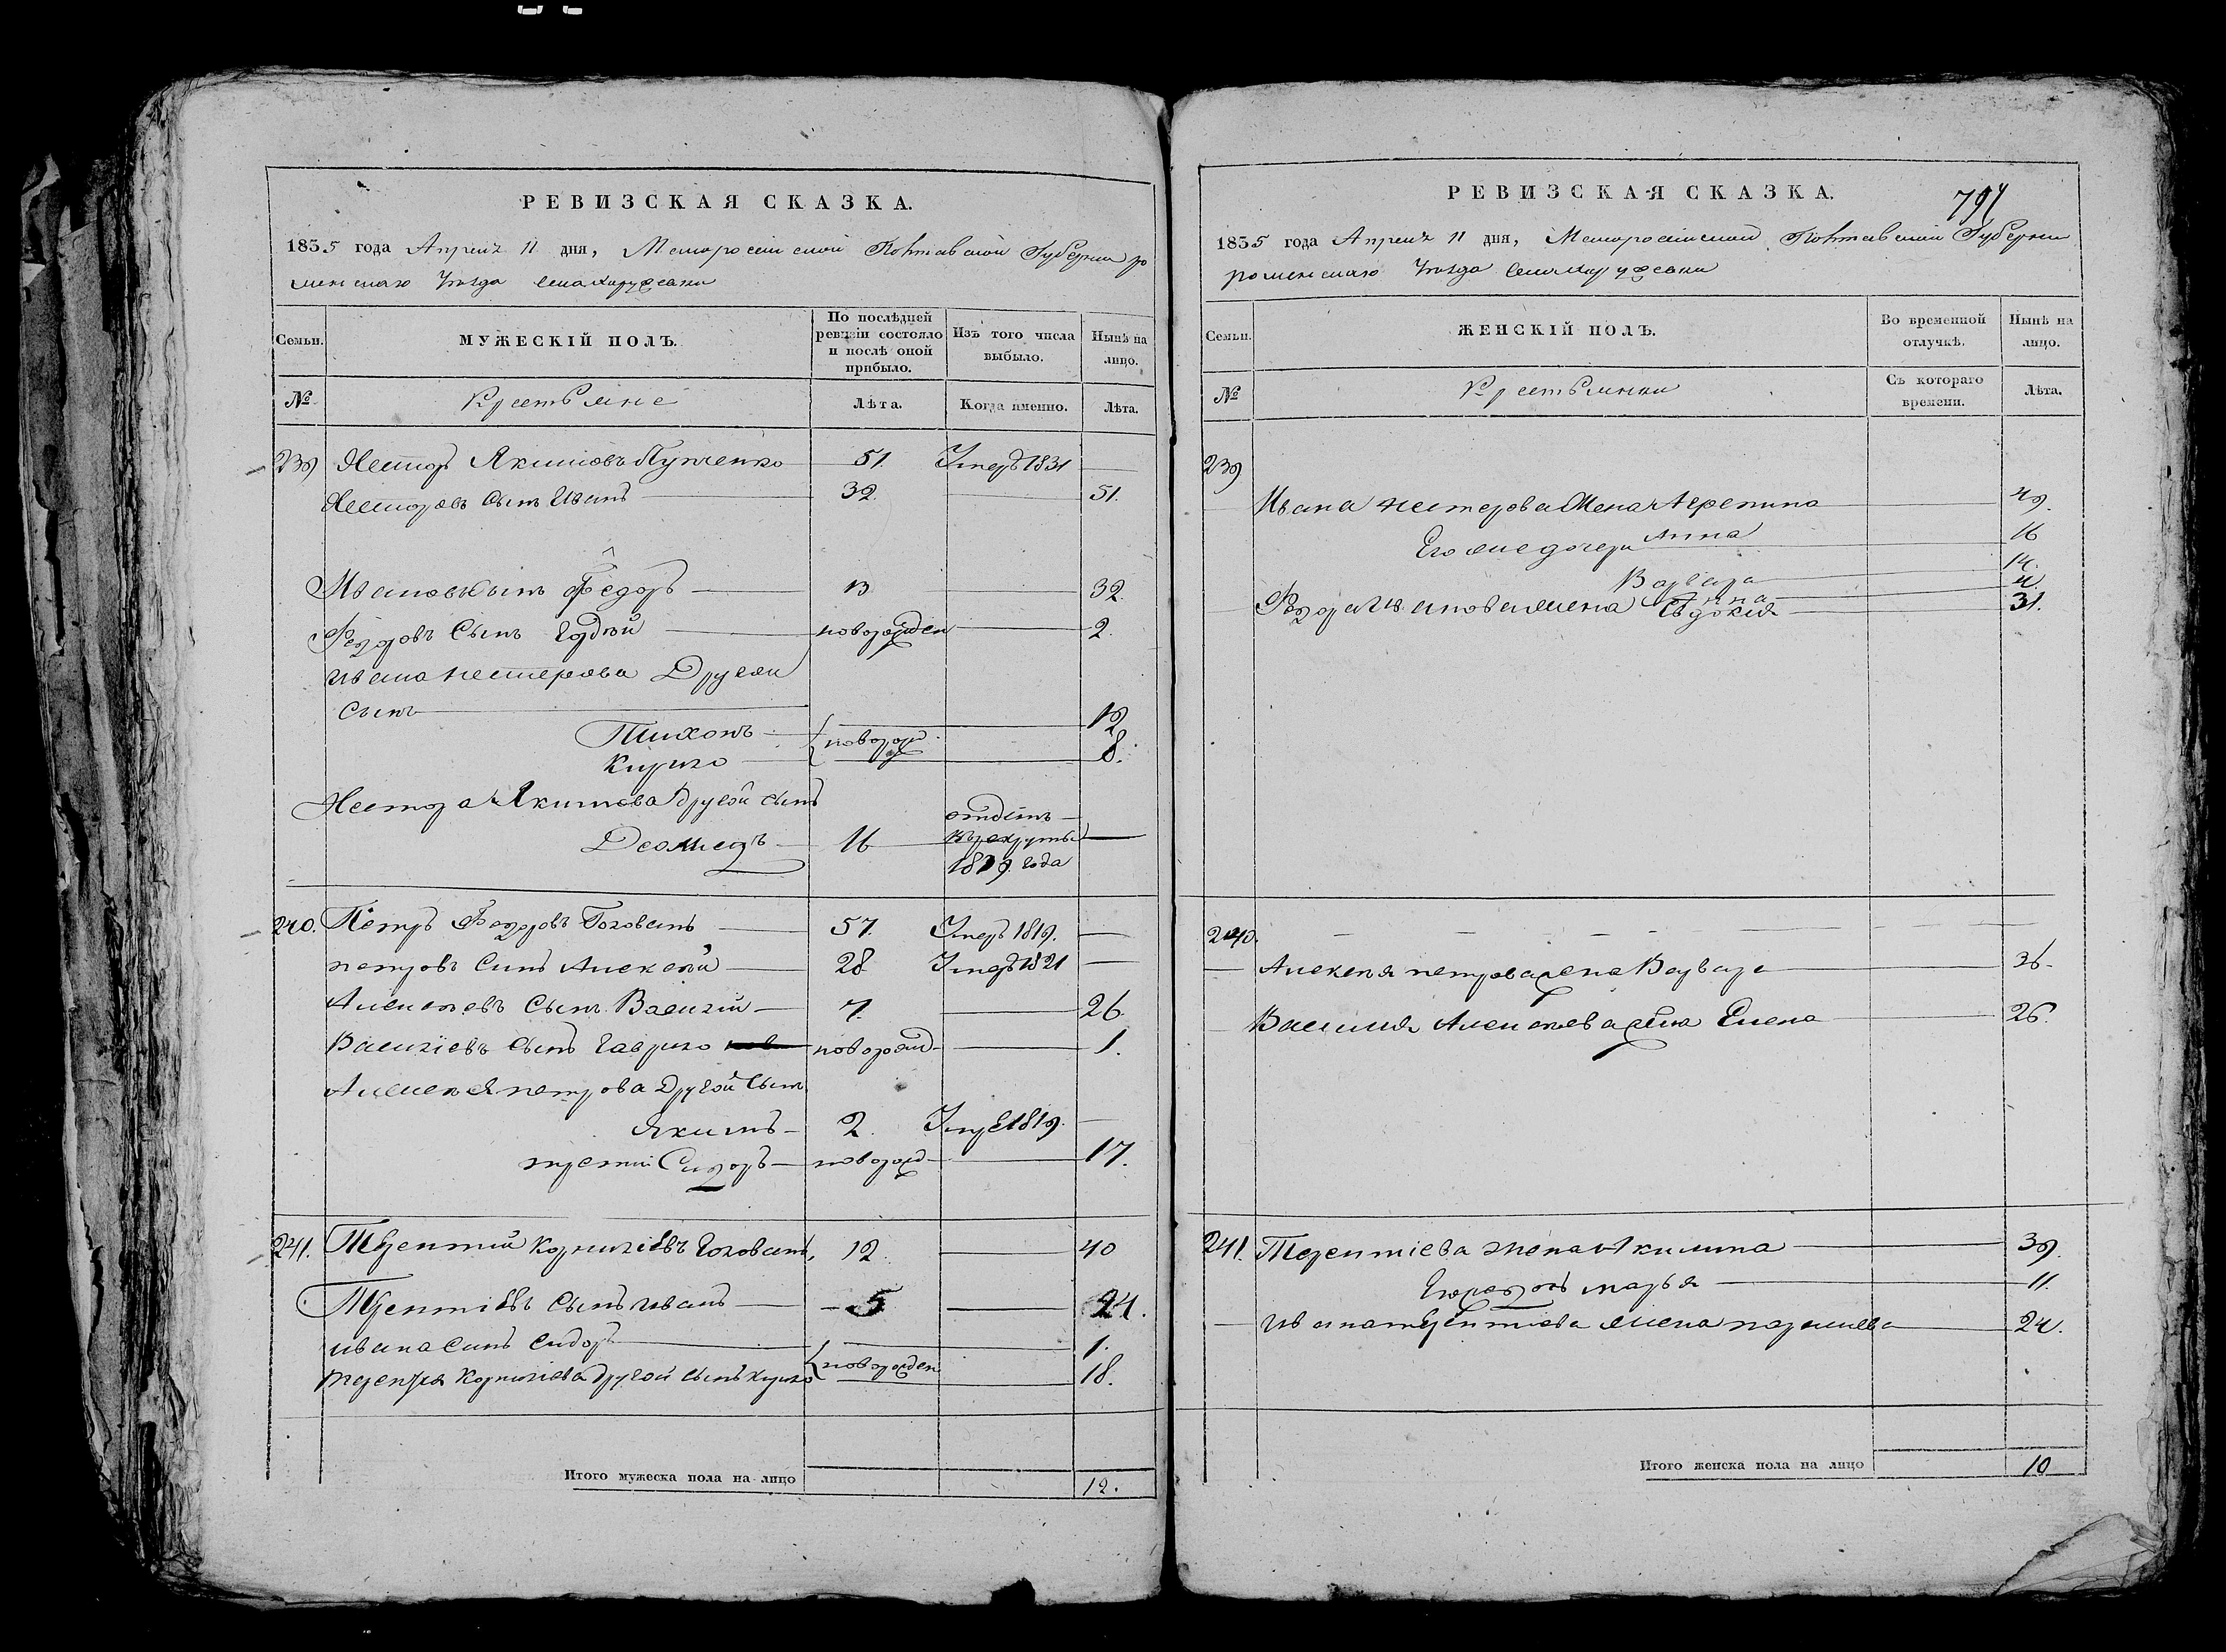 РЕВИЗСКАЯ СКАЗКА.
1835 года Апреля 11 дня, Малоросийской Полтавской Губернии ро
менскаго Уезда Села
Семьи.
МУЖЕСКІЙ ПОЛЪ.
По послѣдней ревизіи состояло и послѣ оной прибыло.
Изъ того числа выбыло.
Нынѣ на лицо.
№
Крестьяне
Лѣта.
Когда именно.
Лѣта.
239 Несторъ Якимовъ 51. Умеръ 1831
Несторовъ Сынъ Иванъ 32. 51.
Ивановъ Сынъ Федоръ 13 32.
Федоровъ Сынъ новорожден 2.
Ивана Нестерова Другой
Сынъ
Тихонъ 12
новорож
Кирило 8.
Нестора Якимова другой сынъ
Деомидъ 16 отдатъ в рекруты 1819. года
240. Петръ Федоровъ Головань 57. Умеръ 1819.
петровъ Синъ Алексей 28 Умеръ 1821
Алексеевъ Сынъ Василій 7. 26.
Василіевъ Сынъ Гаврило новорожд 1.
Алексея петрова Другой Сынъ
Якимъ 2. Умре 1819.
третій Сидоръ новорожд 17.
241. Терентий Корниліевъ Головань, 12 40
Терентіевъ Сынъ иванъ 5 24.
ивана Синъ Сидоръ 1.
новорожден
терентия Корниліева другой Сынъ Кирило 18.
Итого мужеска пола на лицо 12.
РЕВИЗСКАЯ СКАЗКА.
1835 года Апреля 11 дня, Малоросийской Полтавской Губернии
роменскаго Уезда Села
Семьи.
ЖЕНСКІЙ ПОЛЪ.
Во временной отлучкѣ.
Нынѣ на лицо.
№
Крестьянки
Съ котораго времени.
Лѣта.
239
Ивана нестерова Жена Агрепина 49.
Его же дочери Анна 16
Варвара 14.
Анна 4.
Федора Иванова жена Евдокия 31.
240.
Алексея петрова жена Варвара 36
Василия Алексеева жена Елена 26.
241. Терентіева жена Акилина 39.
Его дочь марья 11.
ивана терентіева жена 24.
Итого женска пола на лицо 10